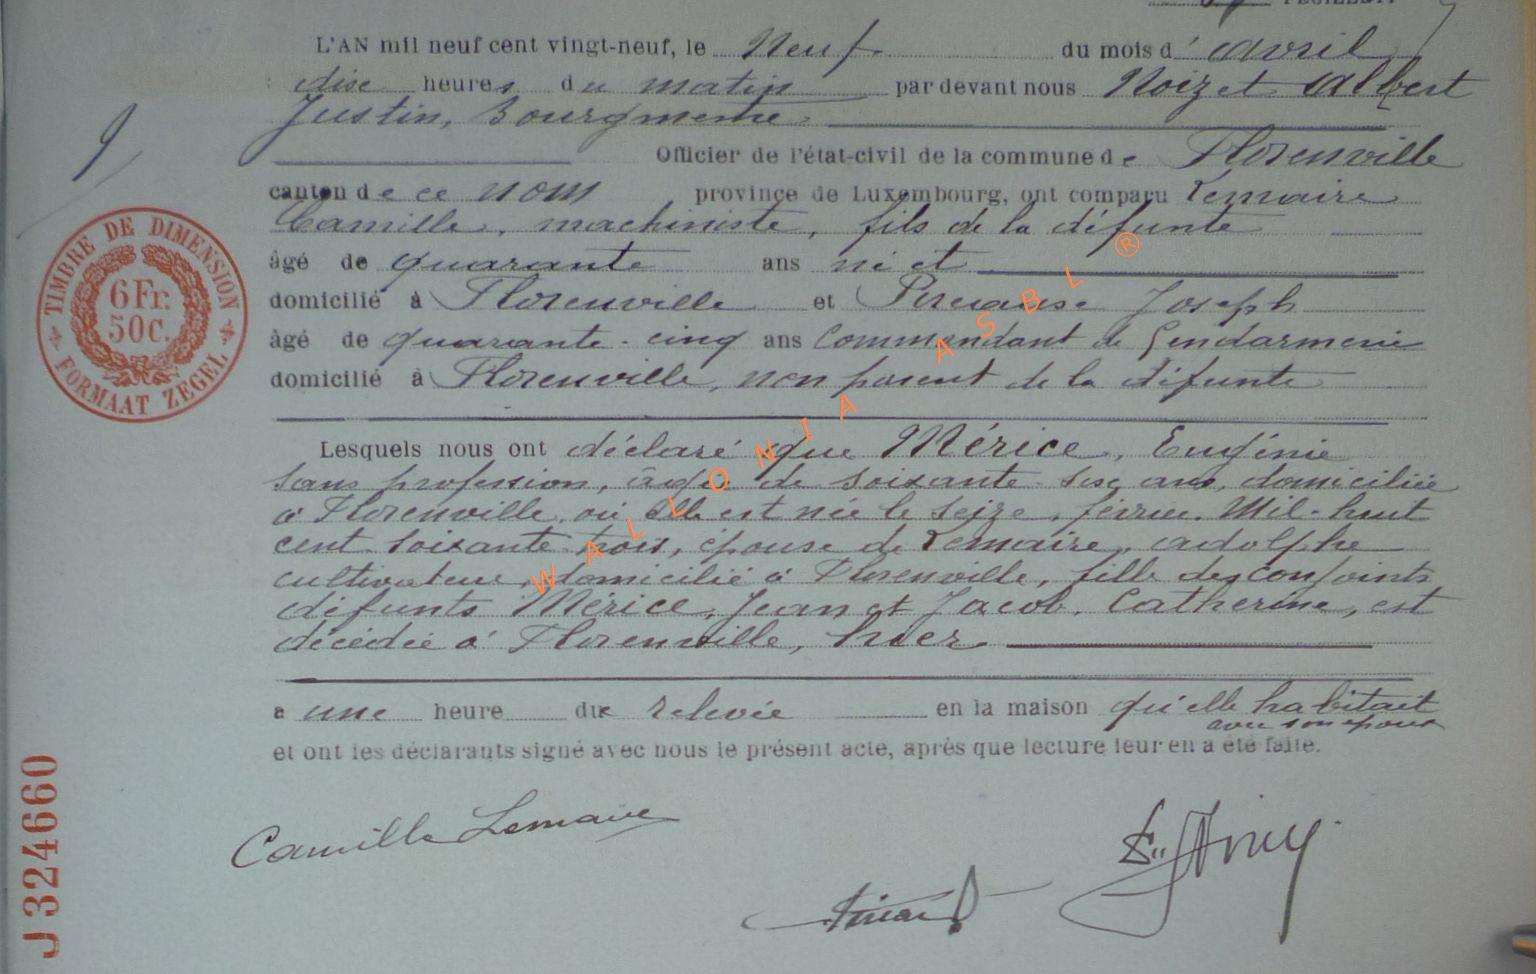 FEUILLET.
L'AN mil neuf cent vingt-neuf, le Neuf du mois d' avril
dix heures du matin par devant nous Noizet Albert
Justin, Bourgmestre
9
Officier de l'état-civil de la commune de Florenville
canton de ce nom province de Luxembourg, ont comparu Lemaire
Camille, machiniste, fils de la défunte
âgé de quarante ans né et
domicilié à Florenville et Joseph
âgé de quarante-cinq ans Commandant de Gendarmerie
domicilié à Florenville, non parent de la défunte
Lesquels nous ont déclaré que Mérice, Eugénie
sans profession, âgée de soixante-six ans, domiciliée
à Florenville où elle est née le seize, février, Mil-huit
cent soixante trois, épouse de Lemaire, adolphe
cultivateur, domicilié à Florenville, fille des conjoints
défunts Mérice, Jean et Jacob, Catherine, est
décédée à Florenville, hier
a une heure du relevée en la maison qu'elle habitait
avec son époux
et ont les déclarants signé avec nous le présent acte, après que lecture leur en a été faite.
Camille Lemaire
TIMBRE DE DIMENSION
6Fr.
50C.
FORMAAT ZEGEL
J 324660
WALLONIA ASBL ®